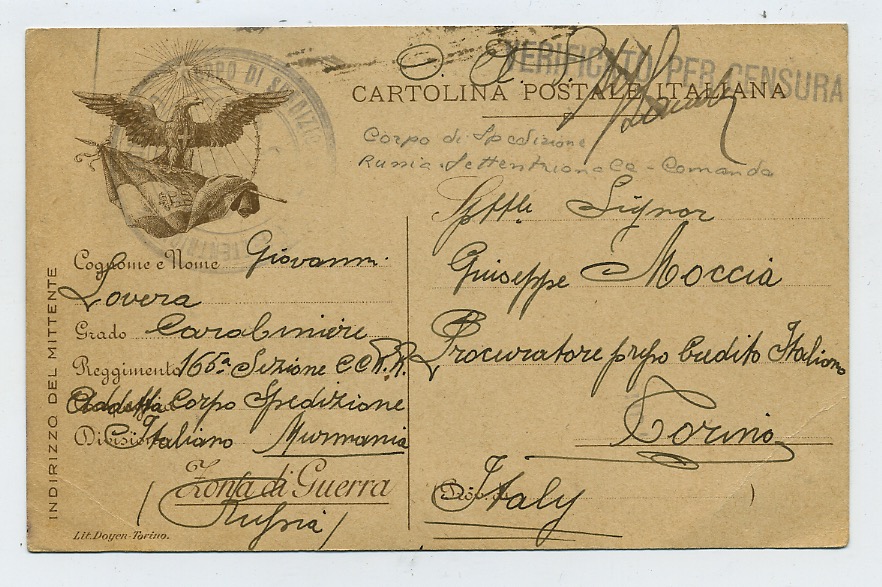 CORPO DI SPEDIZIO
VERIFICATO PER CENSURA
CARTOLINA POSTALE ITALIANA
Corpo di Spedizione
Russia Settentrionale - Comando
INDIRIZZO DEL MITTENTE
Cognome e Nome Giovanni
Lovera
Grado Carabiniere
Reggimento 165a Sezione CC.R.R.
Addetta Corpo Spedizione
Divisione Italiano Murmania
Zona di Guerra
(Russia)
Lit. Doyen-Torino.
Spttle Signor
Giuseppe Moccia
Procuratore presso Credito Italiano
Torino
(Prov. di )
Italy